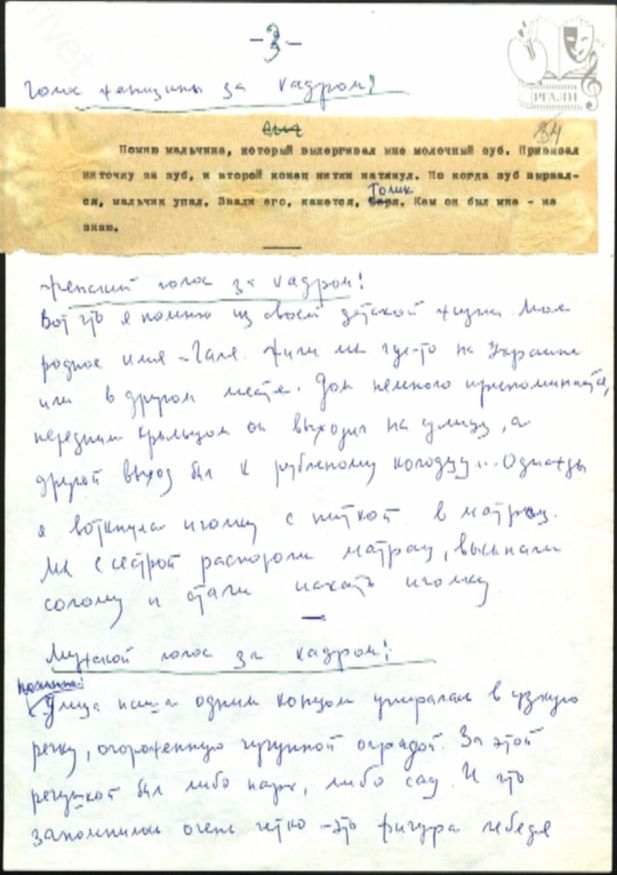 -3-
Голос женщины за кадром!
РГАЛИ
34
Помню мальчика, который выдергивал мне молочный зуб. Привязал
ниточку за зуб, и второй конец нитки натянул. Но когда зуб вырвал-
ся, мальчик упал. Звали его, кажется, Толик. Кем он был мне - не
знаю.
Женский голос за кадром!
Вот что я помню из своей детской жизни. Мое
родное имя - Галя. Жили мы где-то на Украине
или в другом месте. Дом немного припоминается,
передним крыльцом он выходил на улицу, а
другой выход был к рубленому колодцу... Однажды
я воткнула иголку с ниткой в матрац.
Мы с сестрой распороли матрац, высыпали
солому и стали искать иголку
Мужской голос за кадром!
Улица наша одним концом упиралась в узкую
речку, огороженную чугунной оградой. За этой
речушкой был либо парк, либо сад. И что
запомнилось очень четко - это фигура лебедя